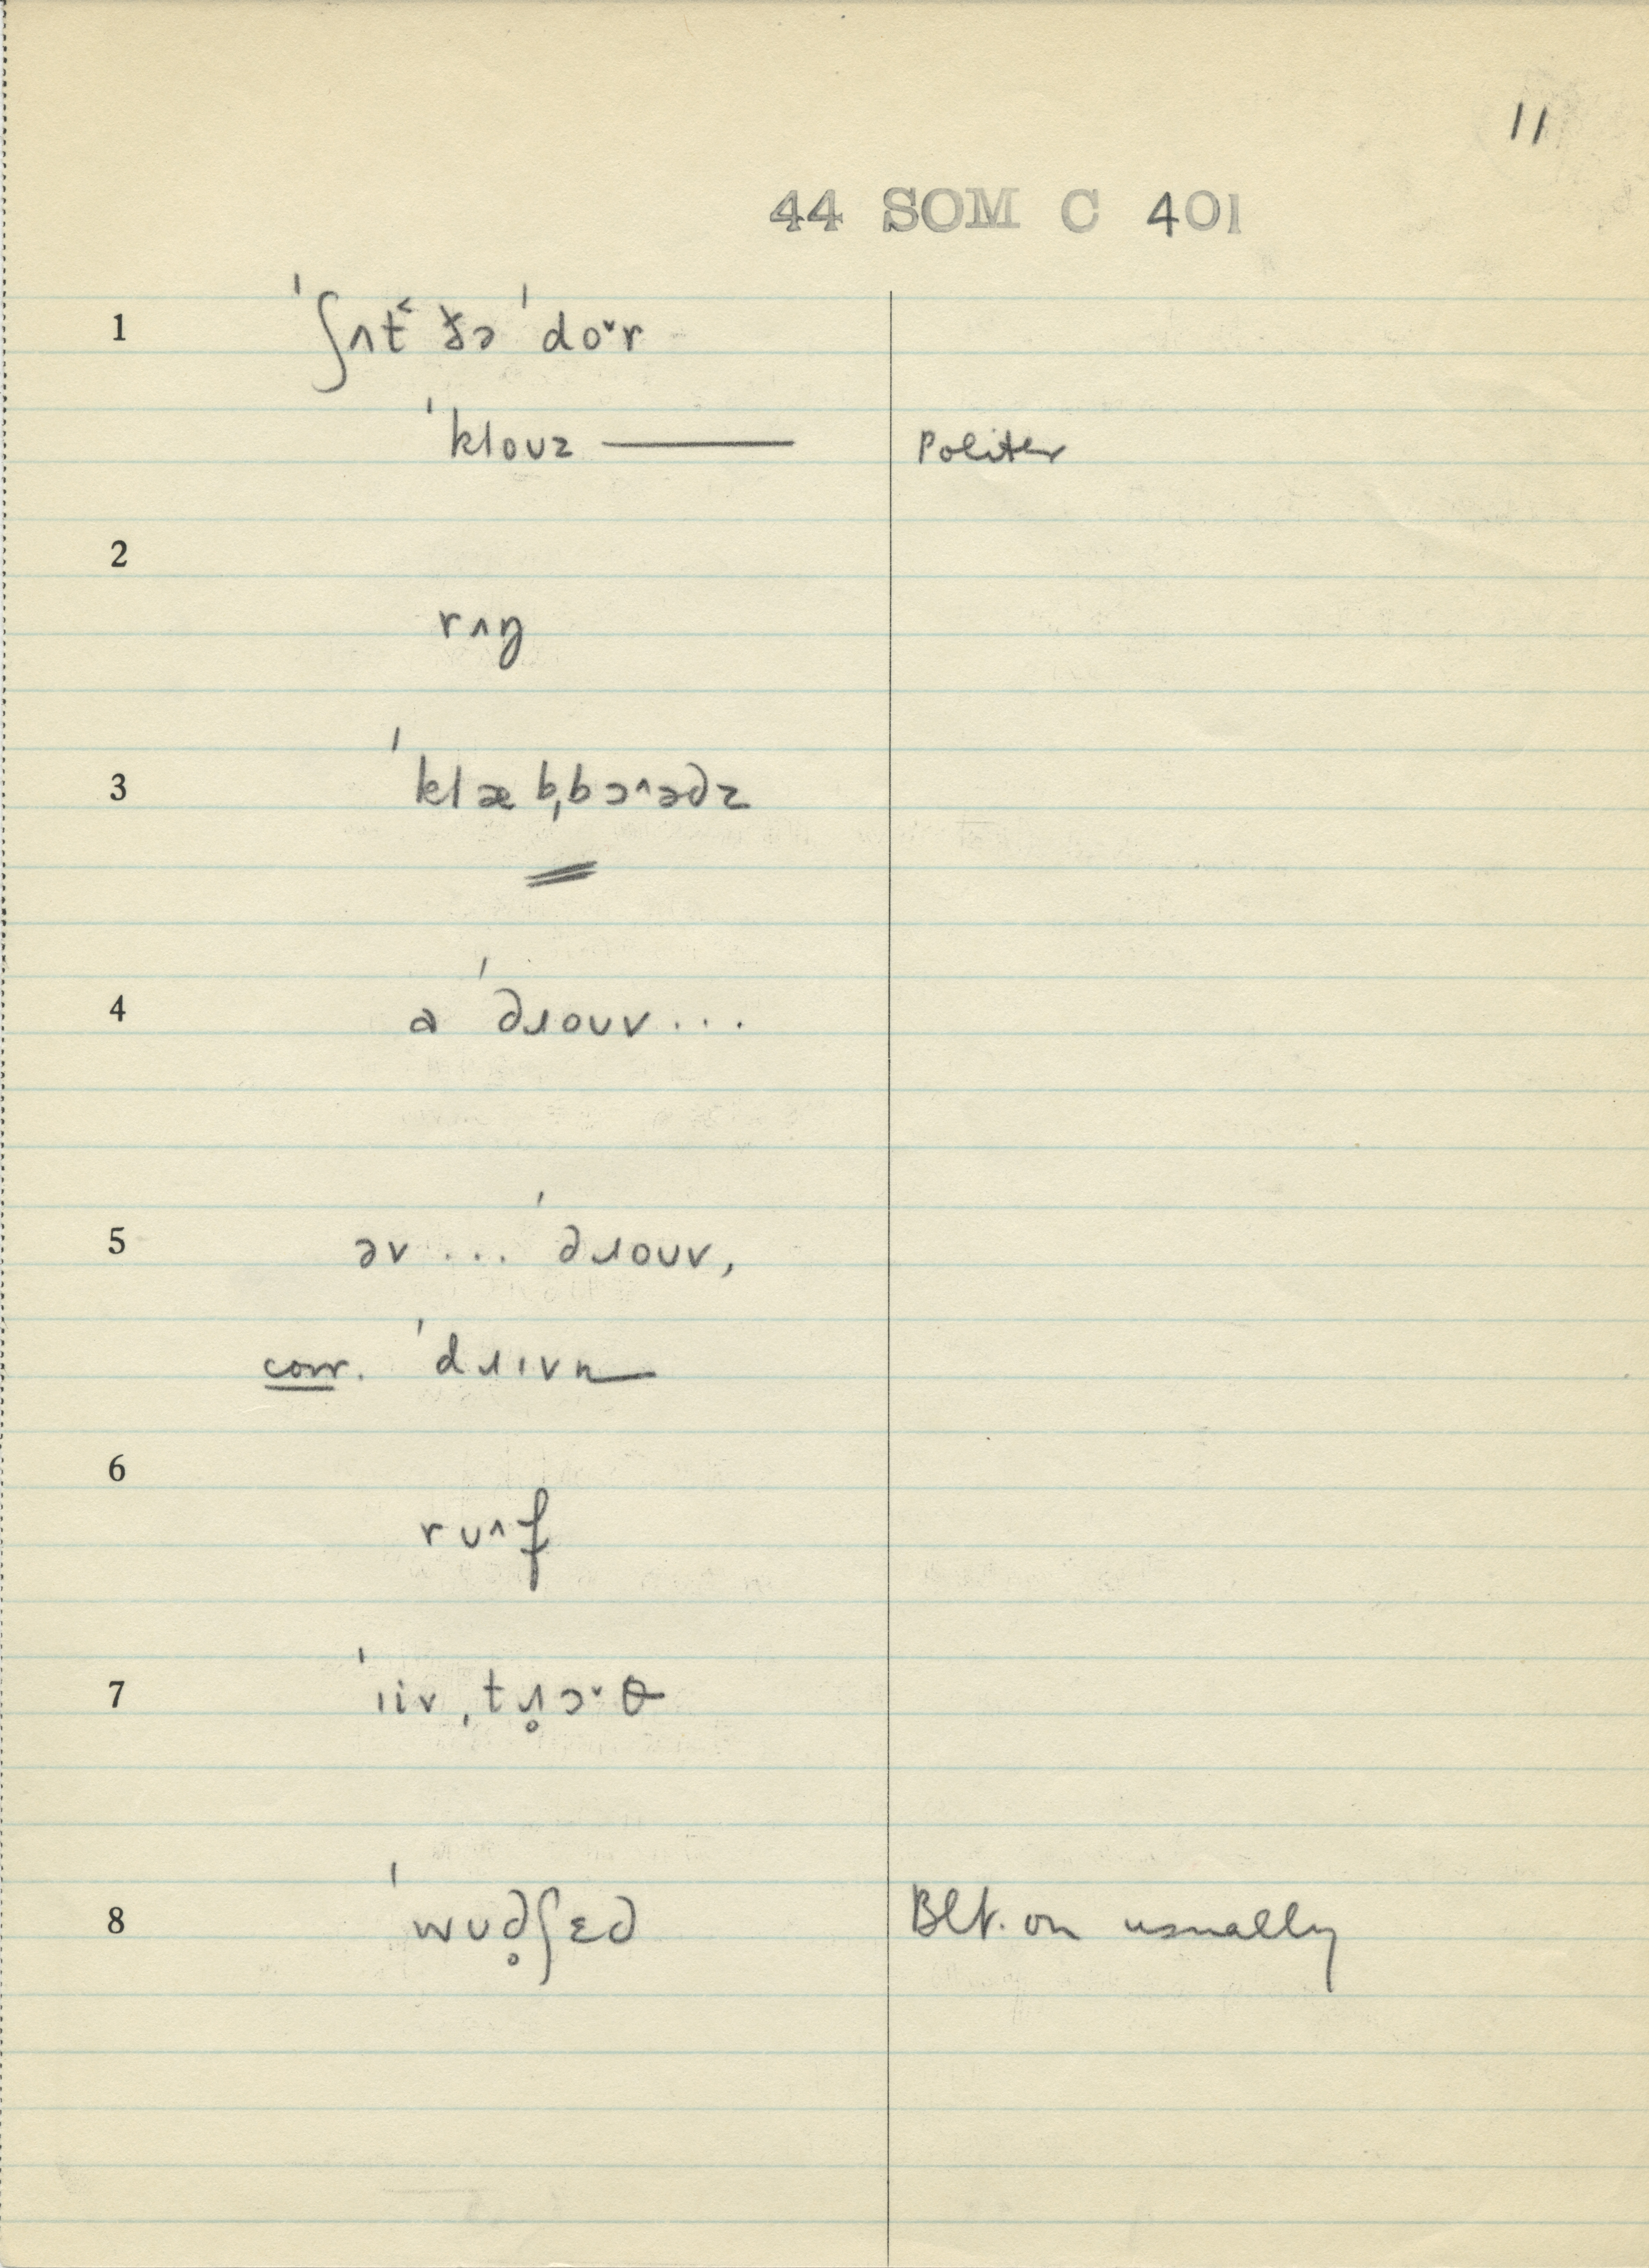 11
44 SOM C 401
1 ˈʃʌt˂ ðə ˈdo˅r
ˈkloʊz —— Politer
2
rʌŋ
3 ˈklæbˌbɔ˄ədz
4 a ˈdɹoʊv ...
5 əv ... ˈdɹoʊv,
corr. ˈdɹɪvn
6
rʊ˄f
7 ˈiivˌtɹ̥ɔ˅θ
8 ˈwʊd̥ʃɛd Blt. on usually